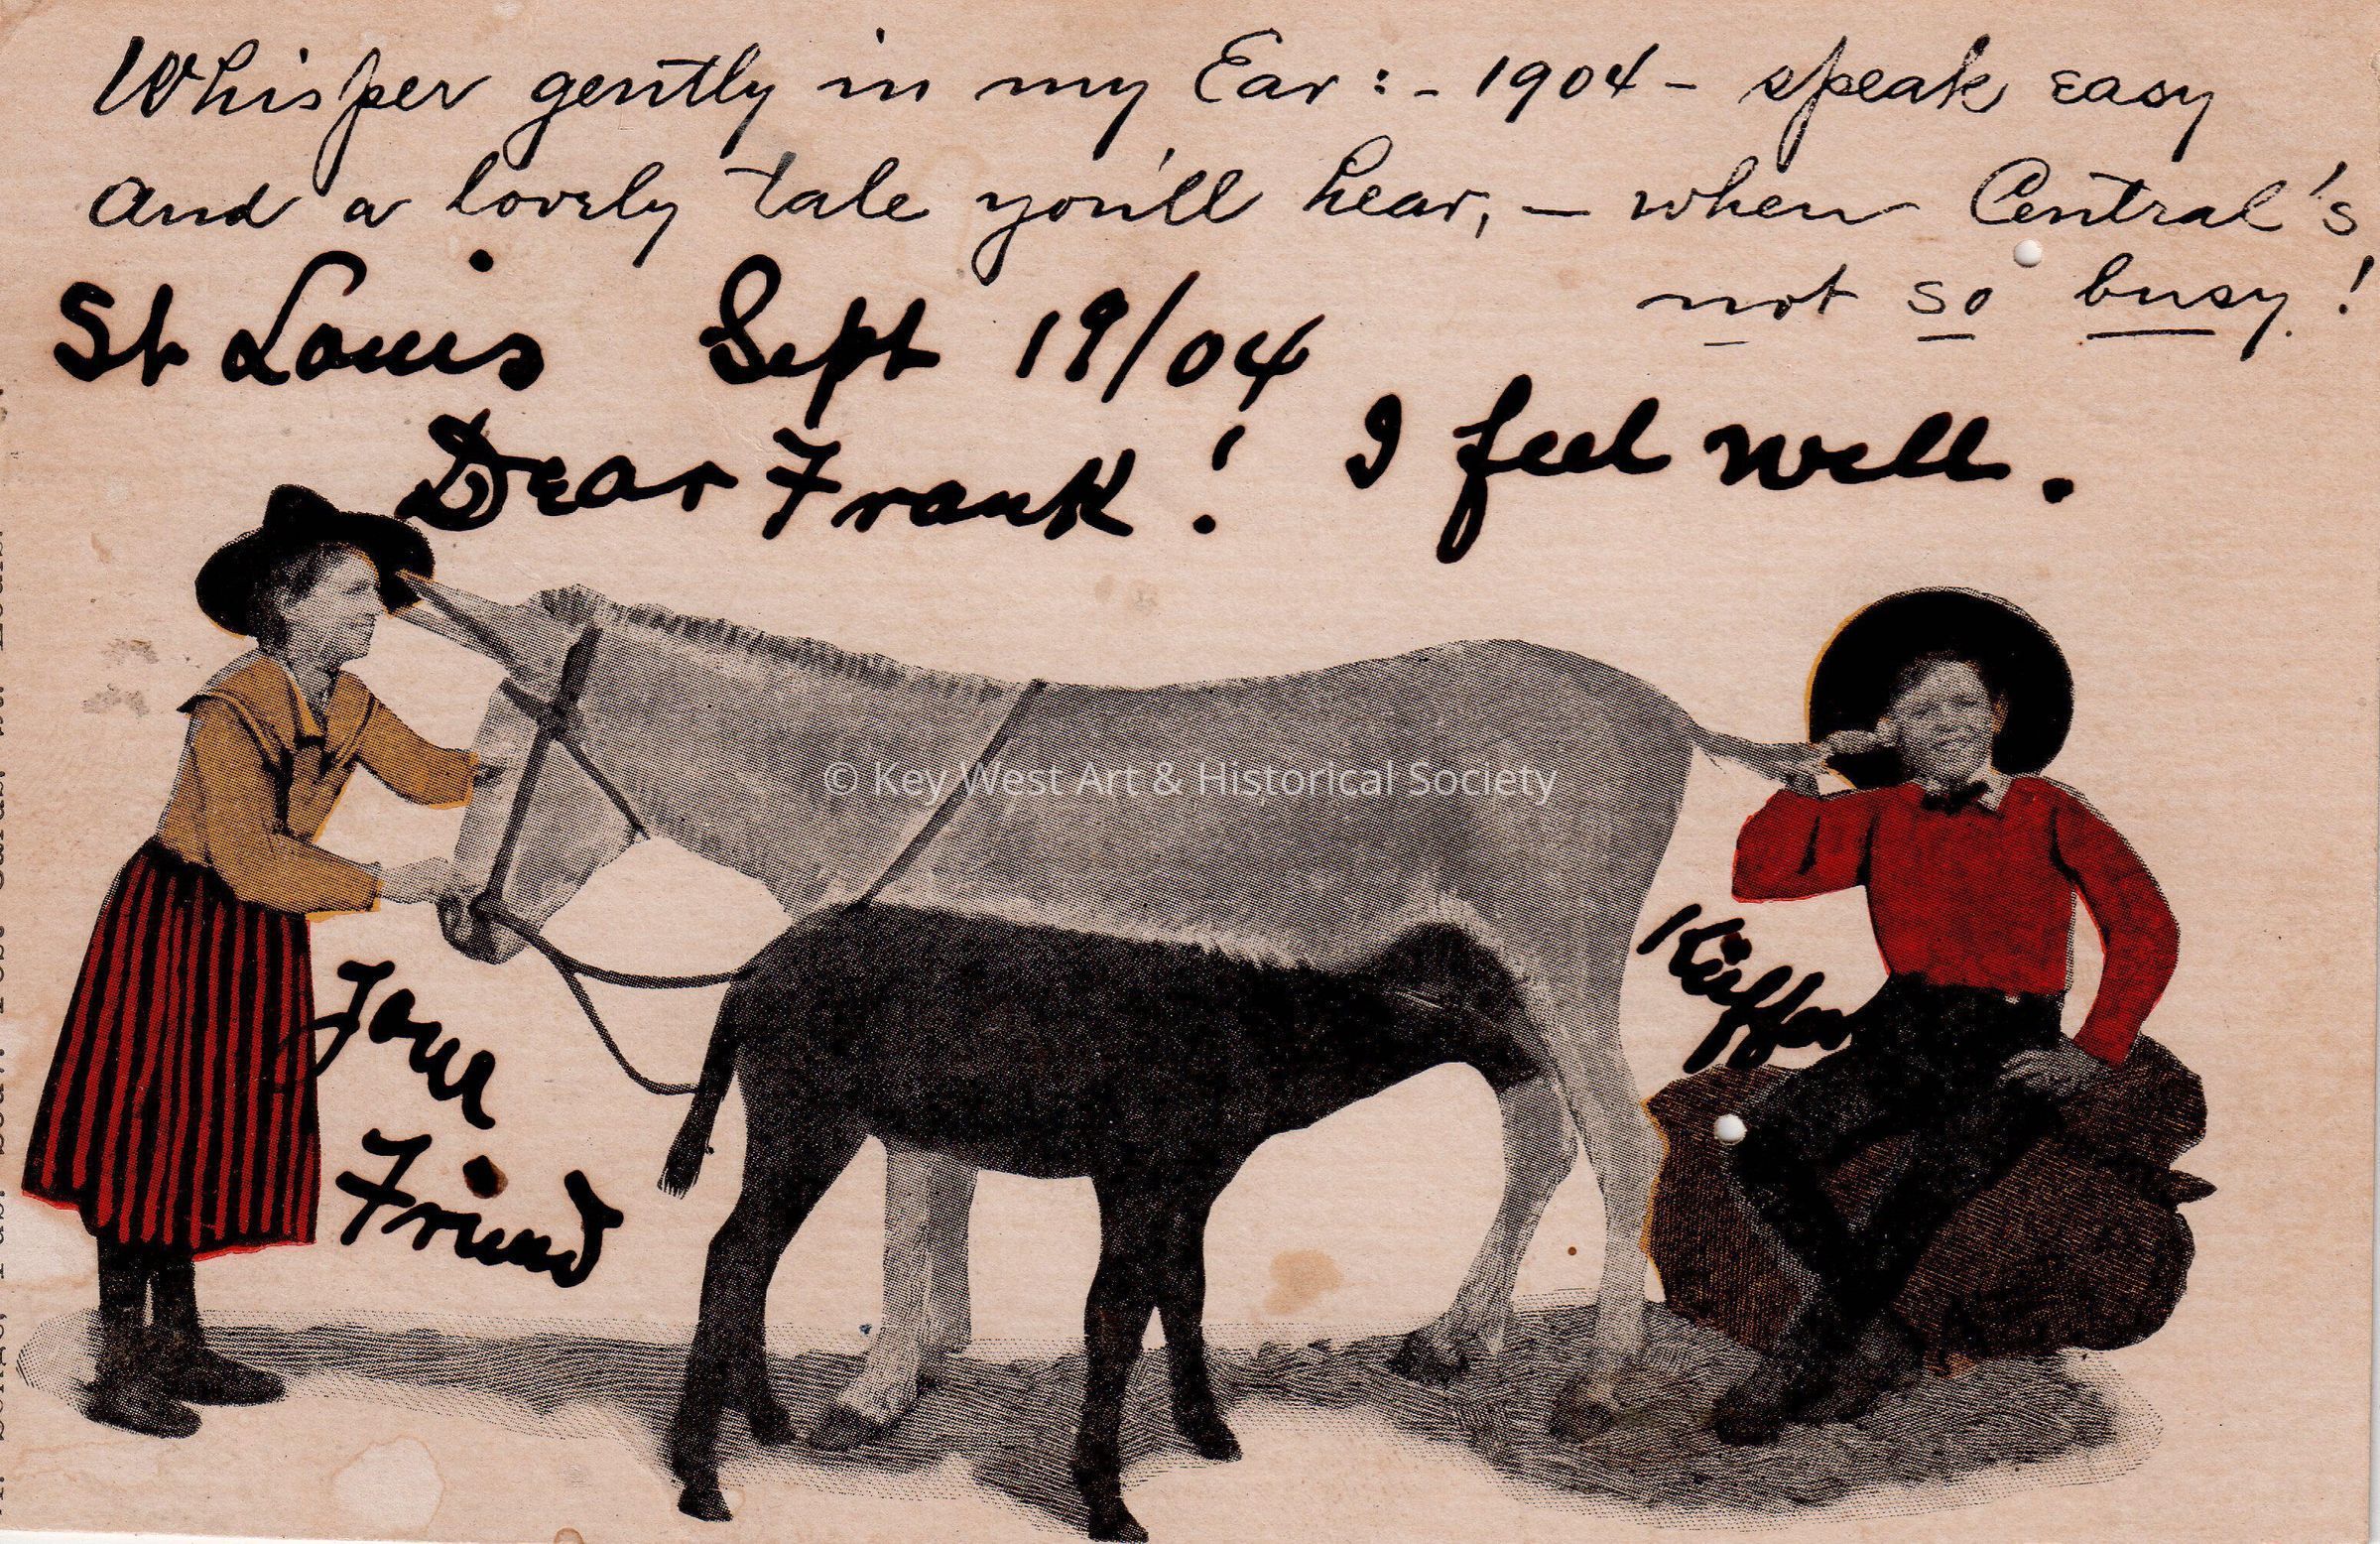 Whisper gently in my Ear: - 1904 - speak easy
And a lovely tale you'll hear, — when Central's
not so busy!
St Louis Sept 19/04
Dear Frank! I feel well.
© Key West Art & Historical Society
Your
Friend